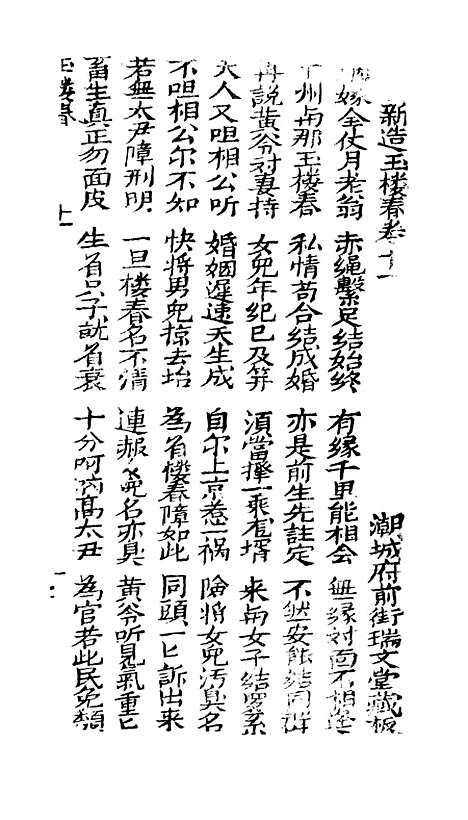 新造玉楼春卷十一 潮城府前街瑞文堂藏板
嫁全仗月老翁 赤绳繫足结始终 有缘千里能相会 無缘对面不相逢
州与那玉楼春 私情苟合结成婚 亦是前生先註定 不然安能结同群
再說黄爷对妻持 女兒年纪已及笄 須當擇一乘龙婿 来与女子结罗系
夫人又呾相公听 婚姻遲速天生成 自尔上京惹一祸 险将女兒污臭名
不呾相公尔不知 快将男兒掠去治 為着楼春障如此 同頭一匕訴出来
若無太尹障刑明 一旦楼春名不清 連赧兒名亦臭 黄爷听見氣重匕
畜生真正勿面皮 生着只子就着衰 十分呵高太尹 為官若此民免類
玉楼春 十一